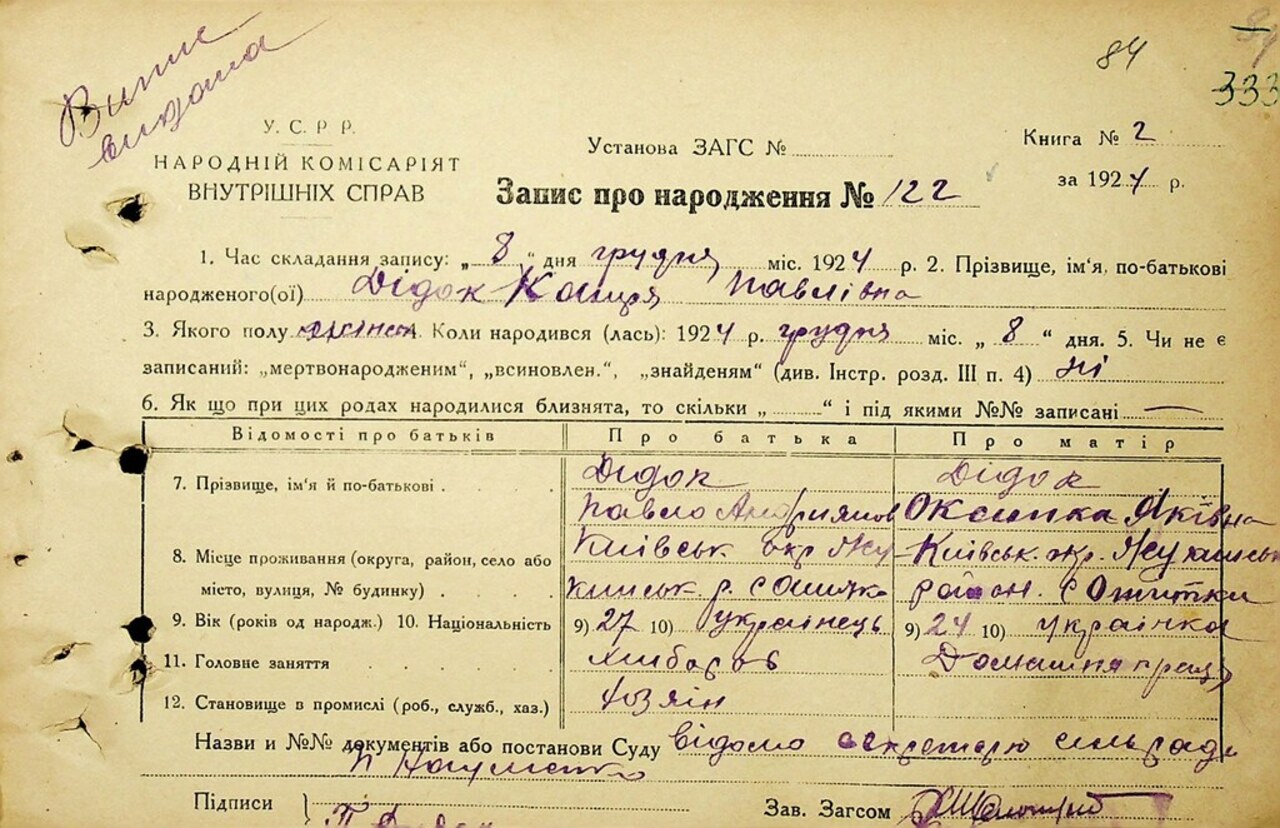 84
333
Випис
видана
У. С. Р. Р.
НАРОДНІЙ КОМІСАРІЯТ
ВНУТРІШНІХ СПРАВ
Установа ЗАГС №
Книга № 2
за 1924 р.
Запис про народження № 122
1. Час складання запису: „ 8 “ дня грудня міс. 1924 р. 2. Прізвище, ім'я, по-батькові
народженого(ої) Дідок Павлівна
3. Якого полу 4. Коли народився (лась): 1924 р. грудня міс. „ 8 “ дня. 5. Чи не є
записаний: „мертвонародженим“, „всиновлен.“, „знайденям“ (див. Інстр. розд. III п. 4) ні
6. Як що при цих родах народилися близнята, то скільки „ “ і під якими №№ записані —
Відомості про батьків Про батька Про матір
7. Прізвище, ім'я й по-батькові . Дідок Дідок
Павло Андриянов Оксинка Яківна
8. Місце проживання (округа, район, село або Київськ окр Київськ. окр.
місто, вулиця, № будинку) . р. с район. с Опитки
9. Вік (років од народж.) 10. Національність 9) 27 10) українець 9) 24 10) українка
11. Головне заняття хлібороб Домашня праця
12. Становище в промислі (роб., служб., хаз.) хозяін
Назви и №№ документів або постанови Суду відомо секретарю сельради
Науменко
Підписи Зав. Загсом